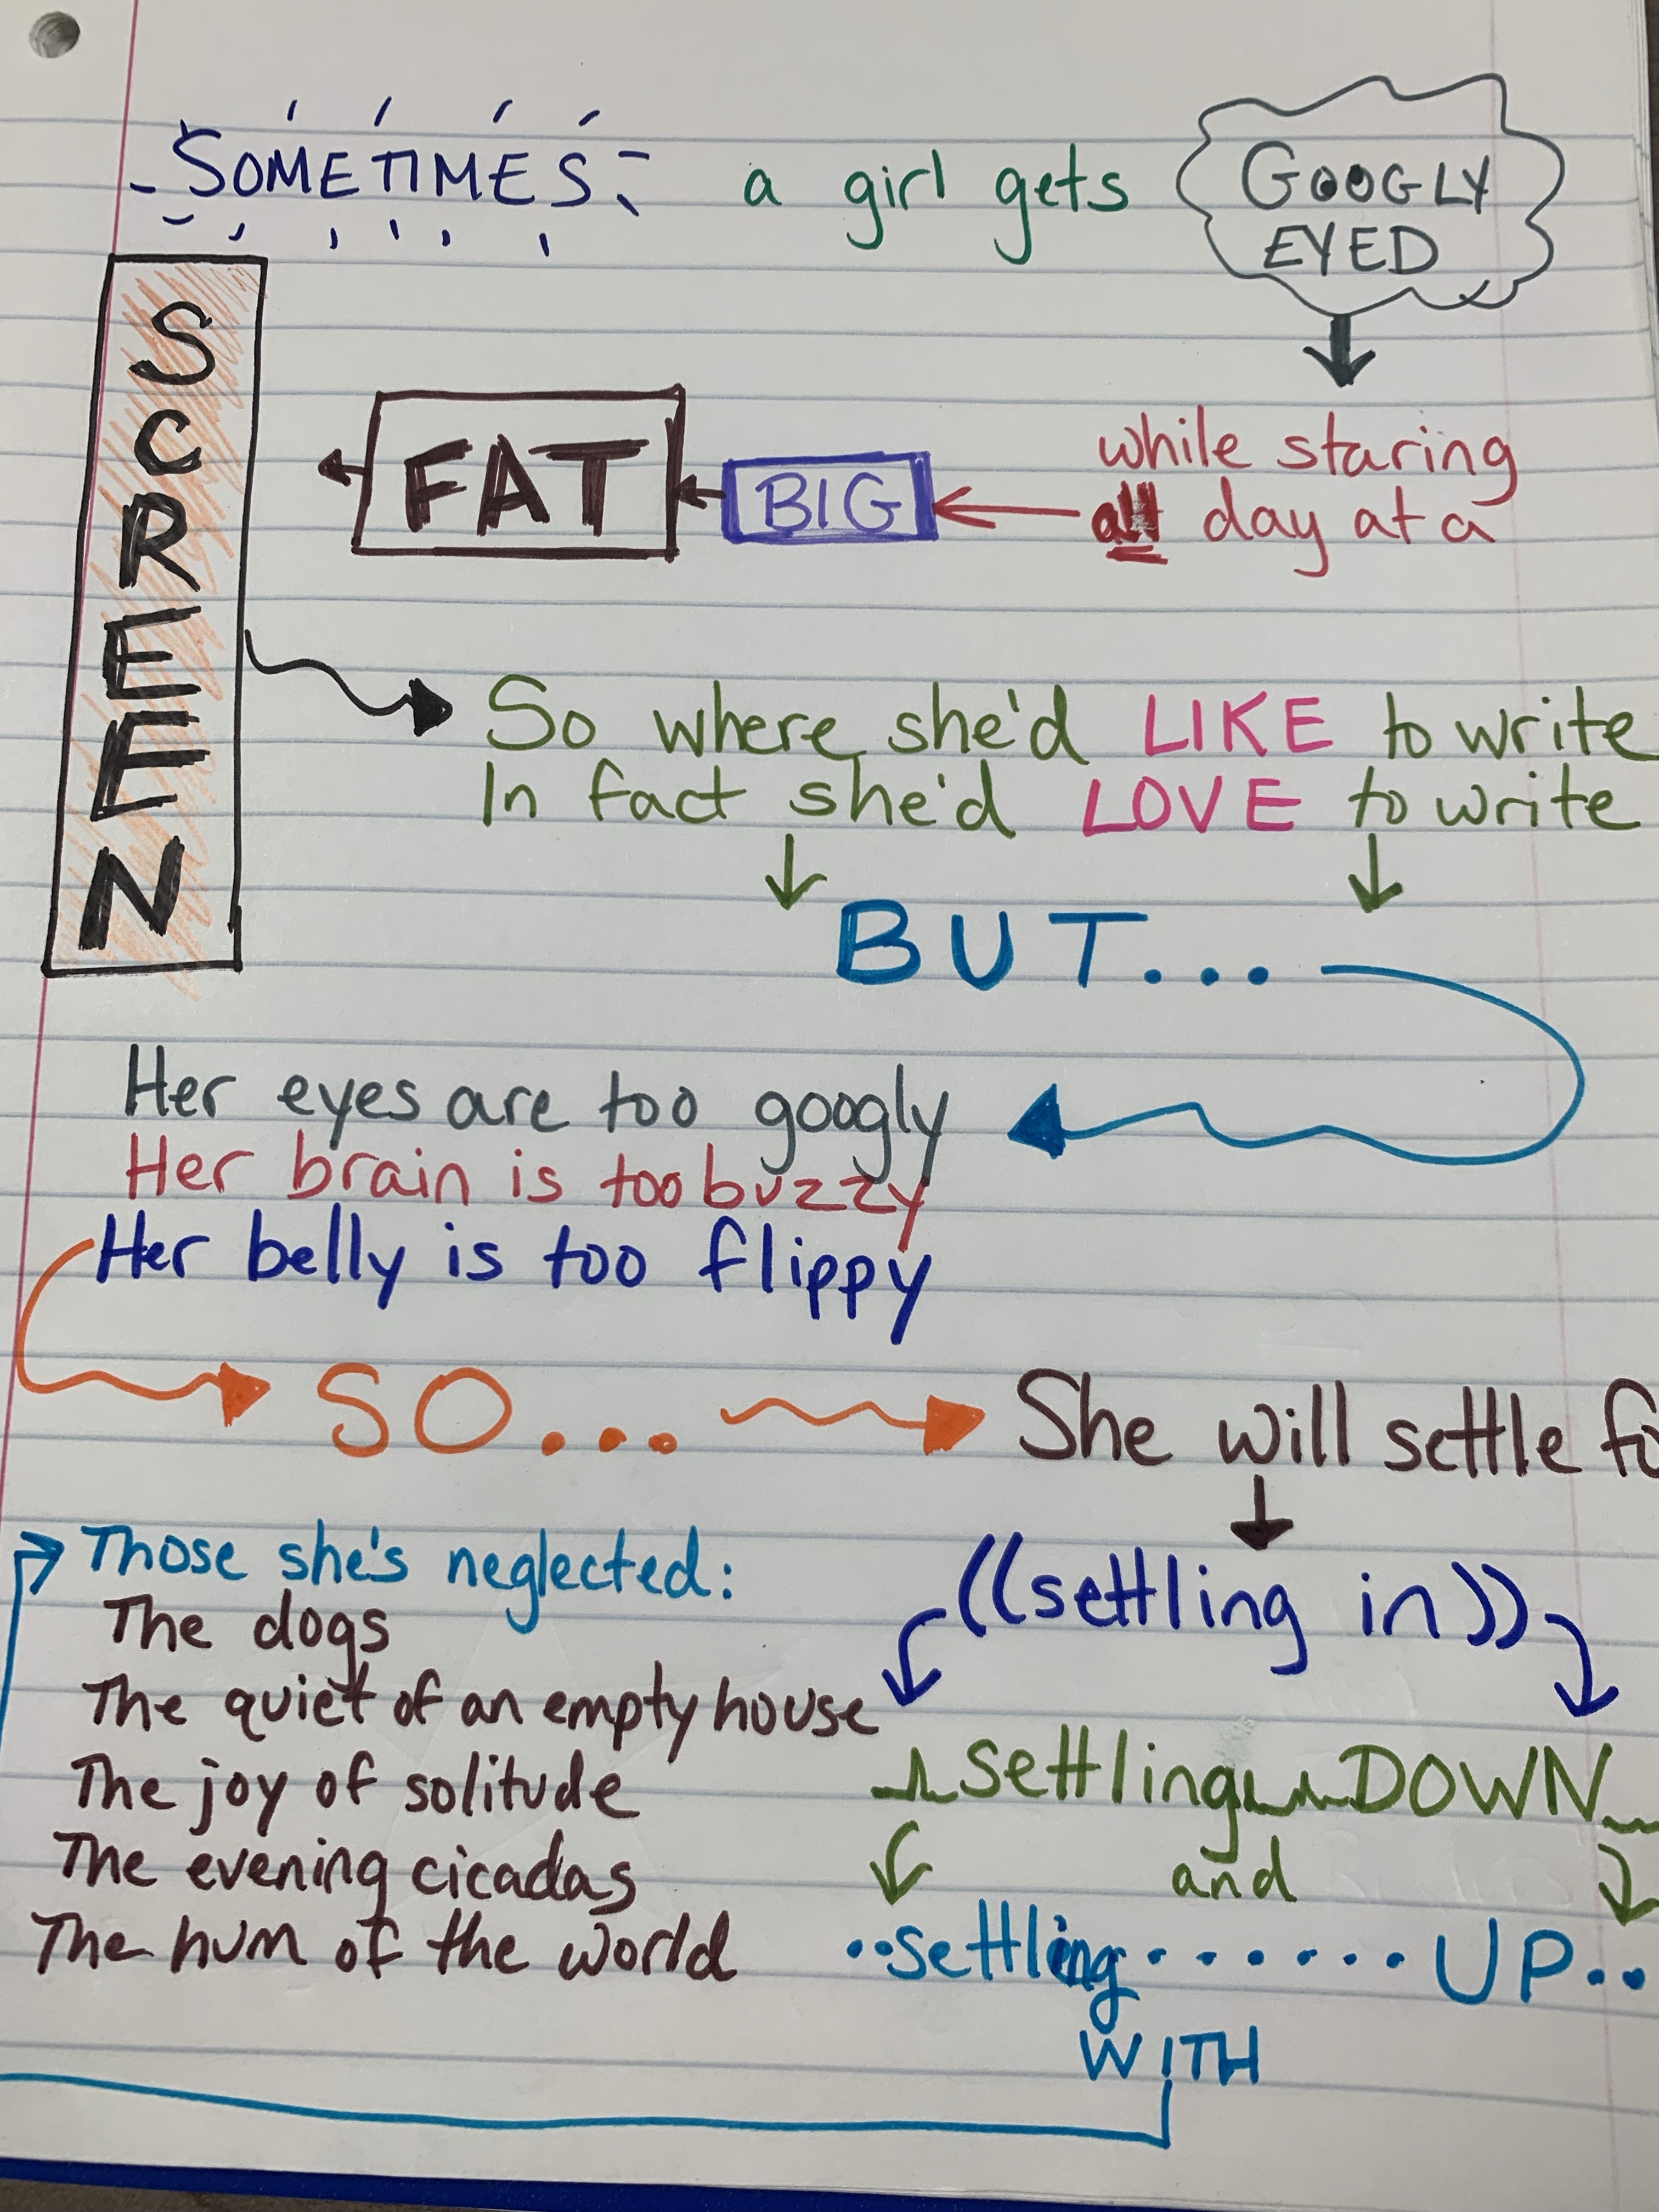 SOMETIMES a girl gets GOOGLY
EYED
while staring
all day at a
BIG
FAT
SCREEN
So where she'd LIKE to write
In fact she'd LOVE to write
BUT...
Her eyes are too googly
Her brain is too buzzy
Her belly is too flippy
SO... She will settle fo
((settling in))
settling DOWN
and
..settling.......UP..
WITH
Those she's neglected:
The dogs
The quiet of an empty house
The joy of solitude
The evening cicadas
The hum of the world